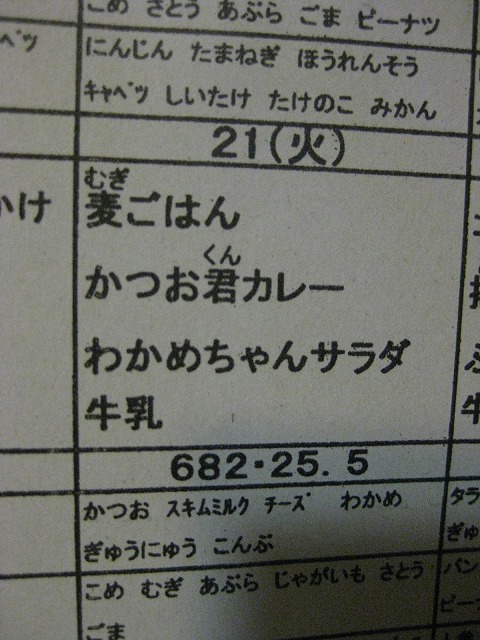 こめ さとう あぶら ごま ピーナツ
にんじん たまねぎ ほうれんそう
キャベツ しいたけ たけのこ みかん
21(火)
むぎ
麦ごはん
くん
かつお君カレー
わかめちゃんサラダ
牛乳
682・25.5
かつお スキムミルク チーズ わかめ
ぎゅうにゅう こんぶ
こめ むぎ あぶら じゃがいも さとう
ごま